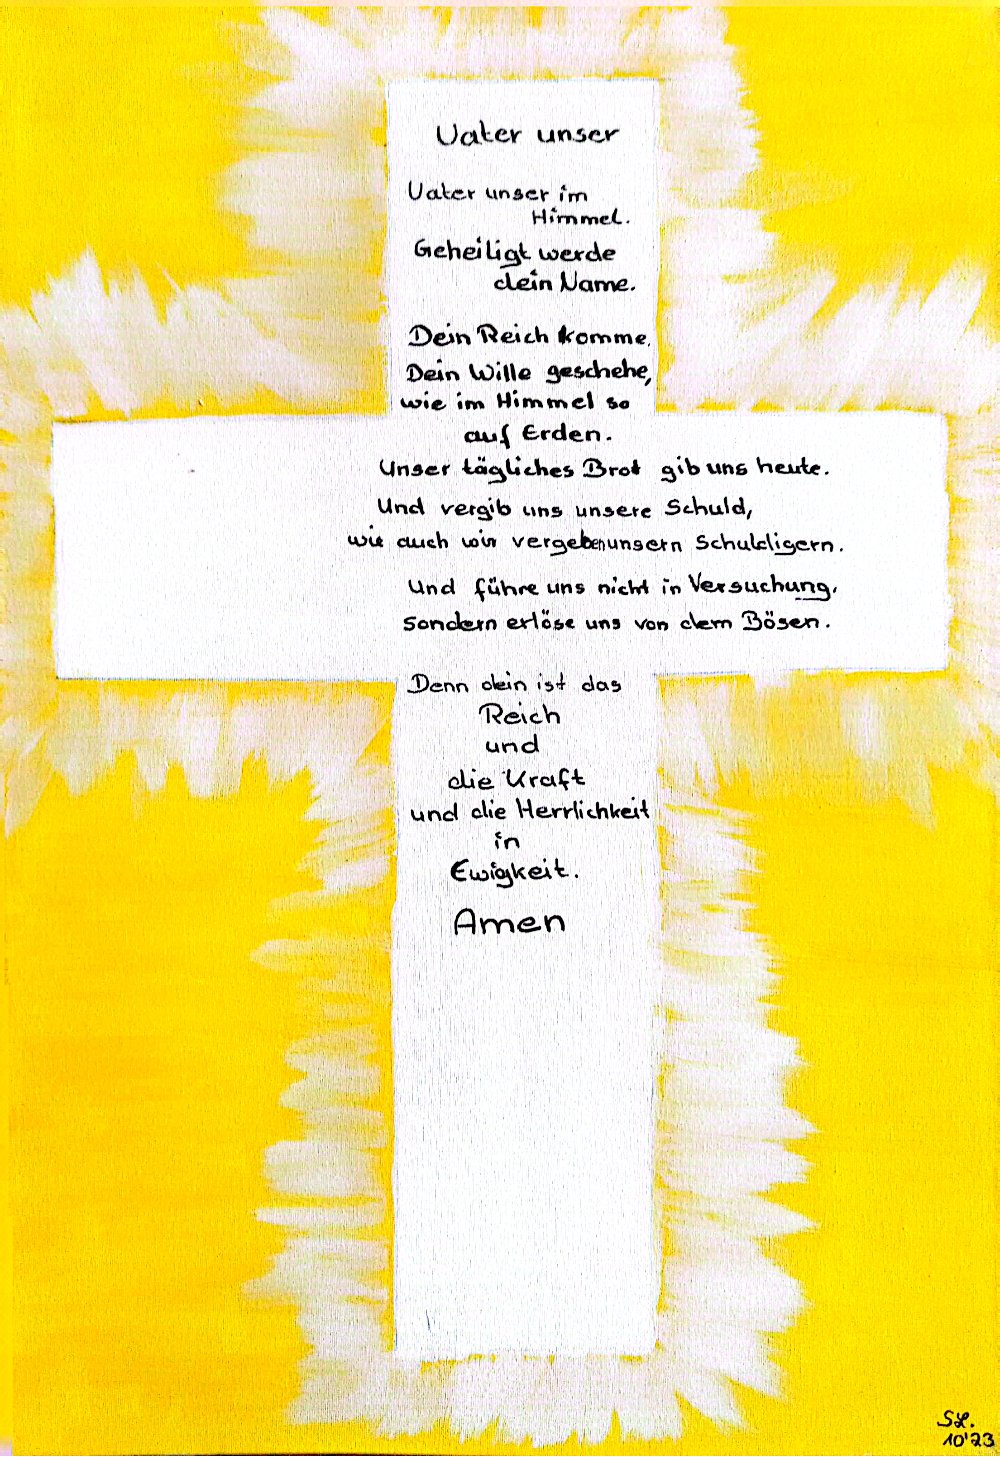 Vater unser
Vater unser im
Himmel.
Geheiligt werde
dein Name.
Dein Reich komme.
Dein Wille geschehe,
wie im Himmel so
auf Erden.
Unser tägliches Brot gib uns heute.
Und vergib uns unsere Schuld,
wie auch wir vergeben unsern Schuldigern.
Und führe uns nicht in Versuchung,
sondern erlöse uns von dem Bösen.
Denn dein ist das
Reich
und
die Kraft
und die Herrlichkeit
in
Ewigkeit.
Amen
SL.
10'23